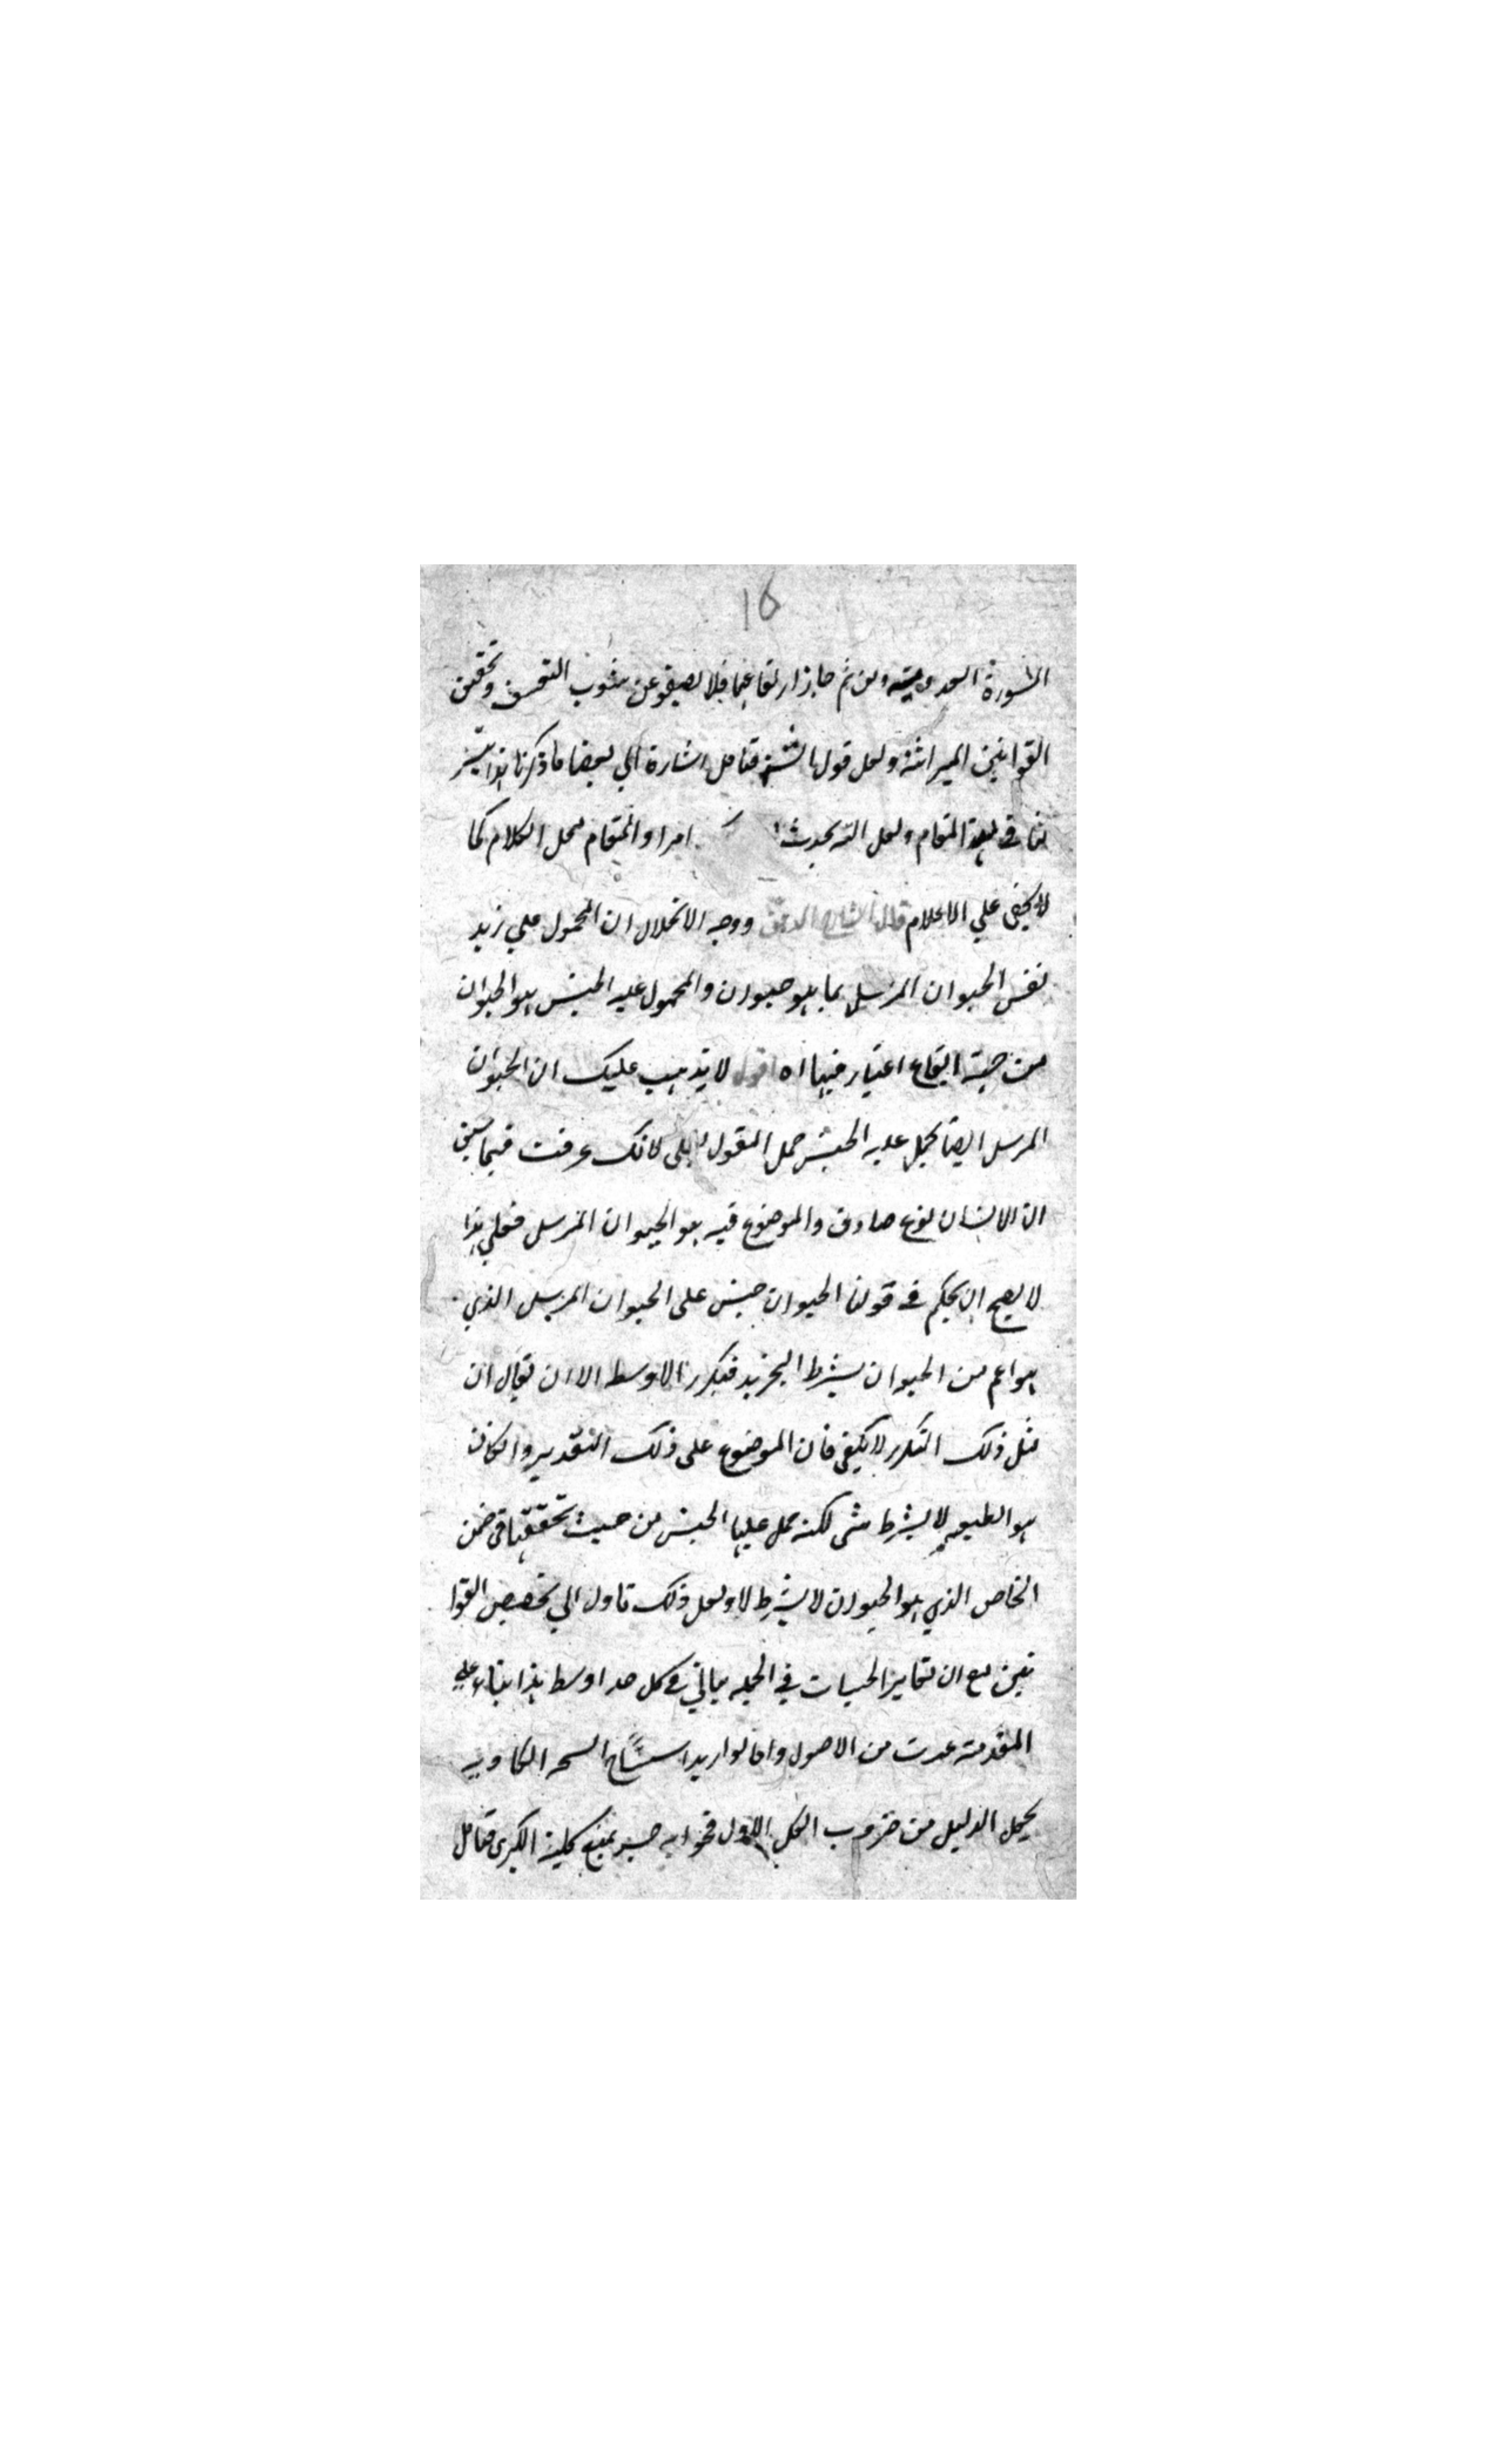 16
المشورة العدمية ومن ثم جاز ارتفاعهما فلا يصفو عن شوب التعسف وتحقيق
القوانين الميزانية ولعل قول فتامل اشارة الي بعض ما ذكرنا هذا تيسر
لنا في هذا المقام ولعل الله يحدث امرا والمقام محل الكلام كما
لا يخفى علي الاعلام قال الشارح المدقق ووجه الانحلال ان المحمول علي زيد
نفس الحيوان المرسل بما هو حيوان والمحمول عليه الجنس هو الحيوان
من جهة ايقاع اعتبار فيها اه اقول لا يذهب عليك ان الحيوان
المرسل ايضا يحمل عليه الجنس حمل المقول لانك عرفت فيما سبق
ان الانسان نوع صادق والموضوع فيه هو الحيوان المرسل فعلي هذا
لا يصح ان يحكم في قولنا الحيوان جنس على الحيوان المرسل الذي
هو اعم من الحيوان بشرط التجريد فتكرر الاوسط الا ان يقال ان
مثل ذلك التكرر لا يكفي فان الموضوع على ذلك التقدير وان كان
هو الطبيعة لا بشرط شى لكنه يحمل عليها الجنس من حيث تحققها في ضمن
الخاص الذي هو الحيوان لا بشرط لا ولعل ذلك تاول الي تخصيص القوا
نين مع ان تمايز الحيثيات في الجملة ياتي في كل حد اوسط هذا بناء علي
المقدمة عدت من الاصول واما لو اريد استنتاج
يجعل الدليل من ضروب الشكل الاول فجوابه بمنع كلية الكبرى فتامل